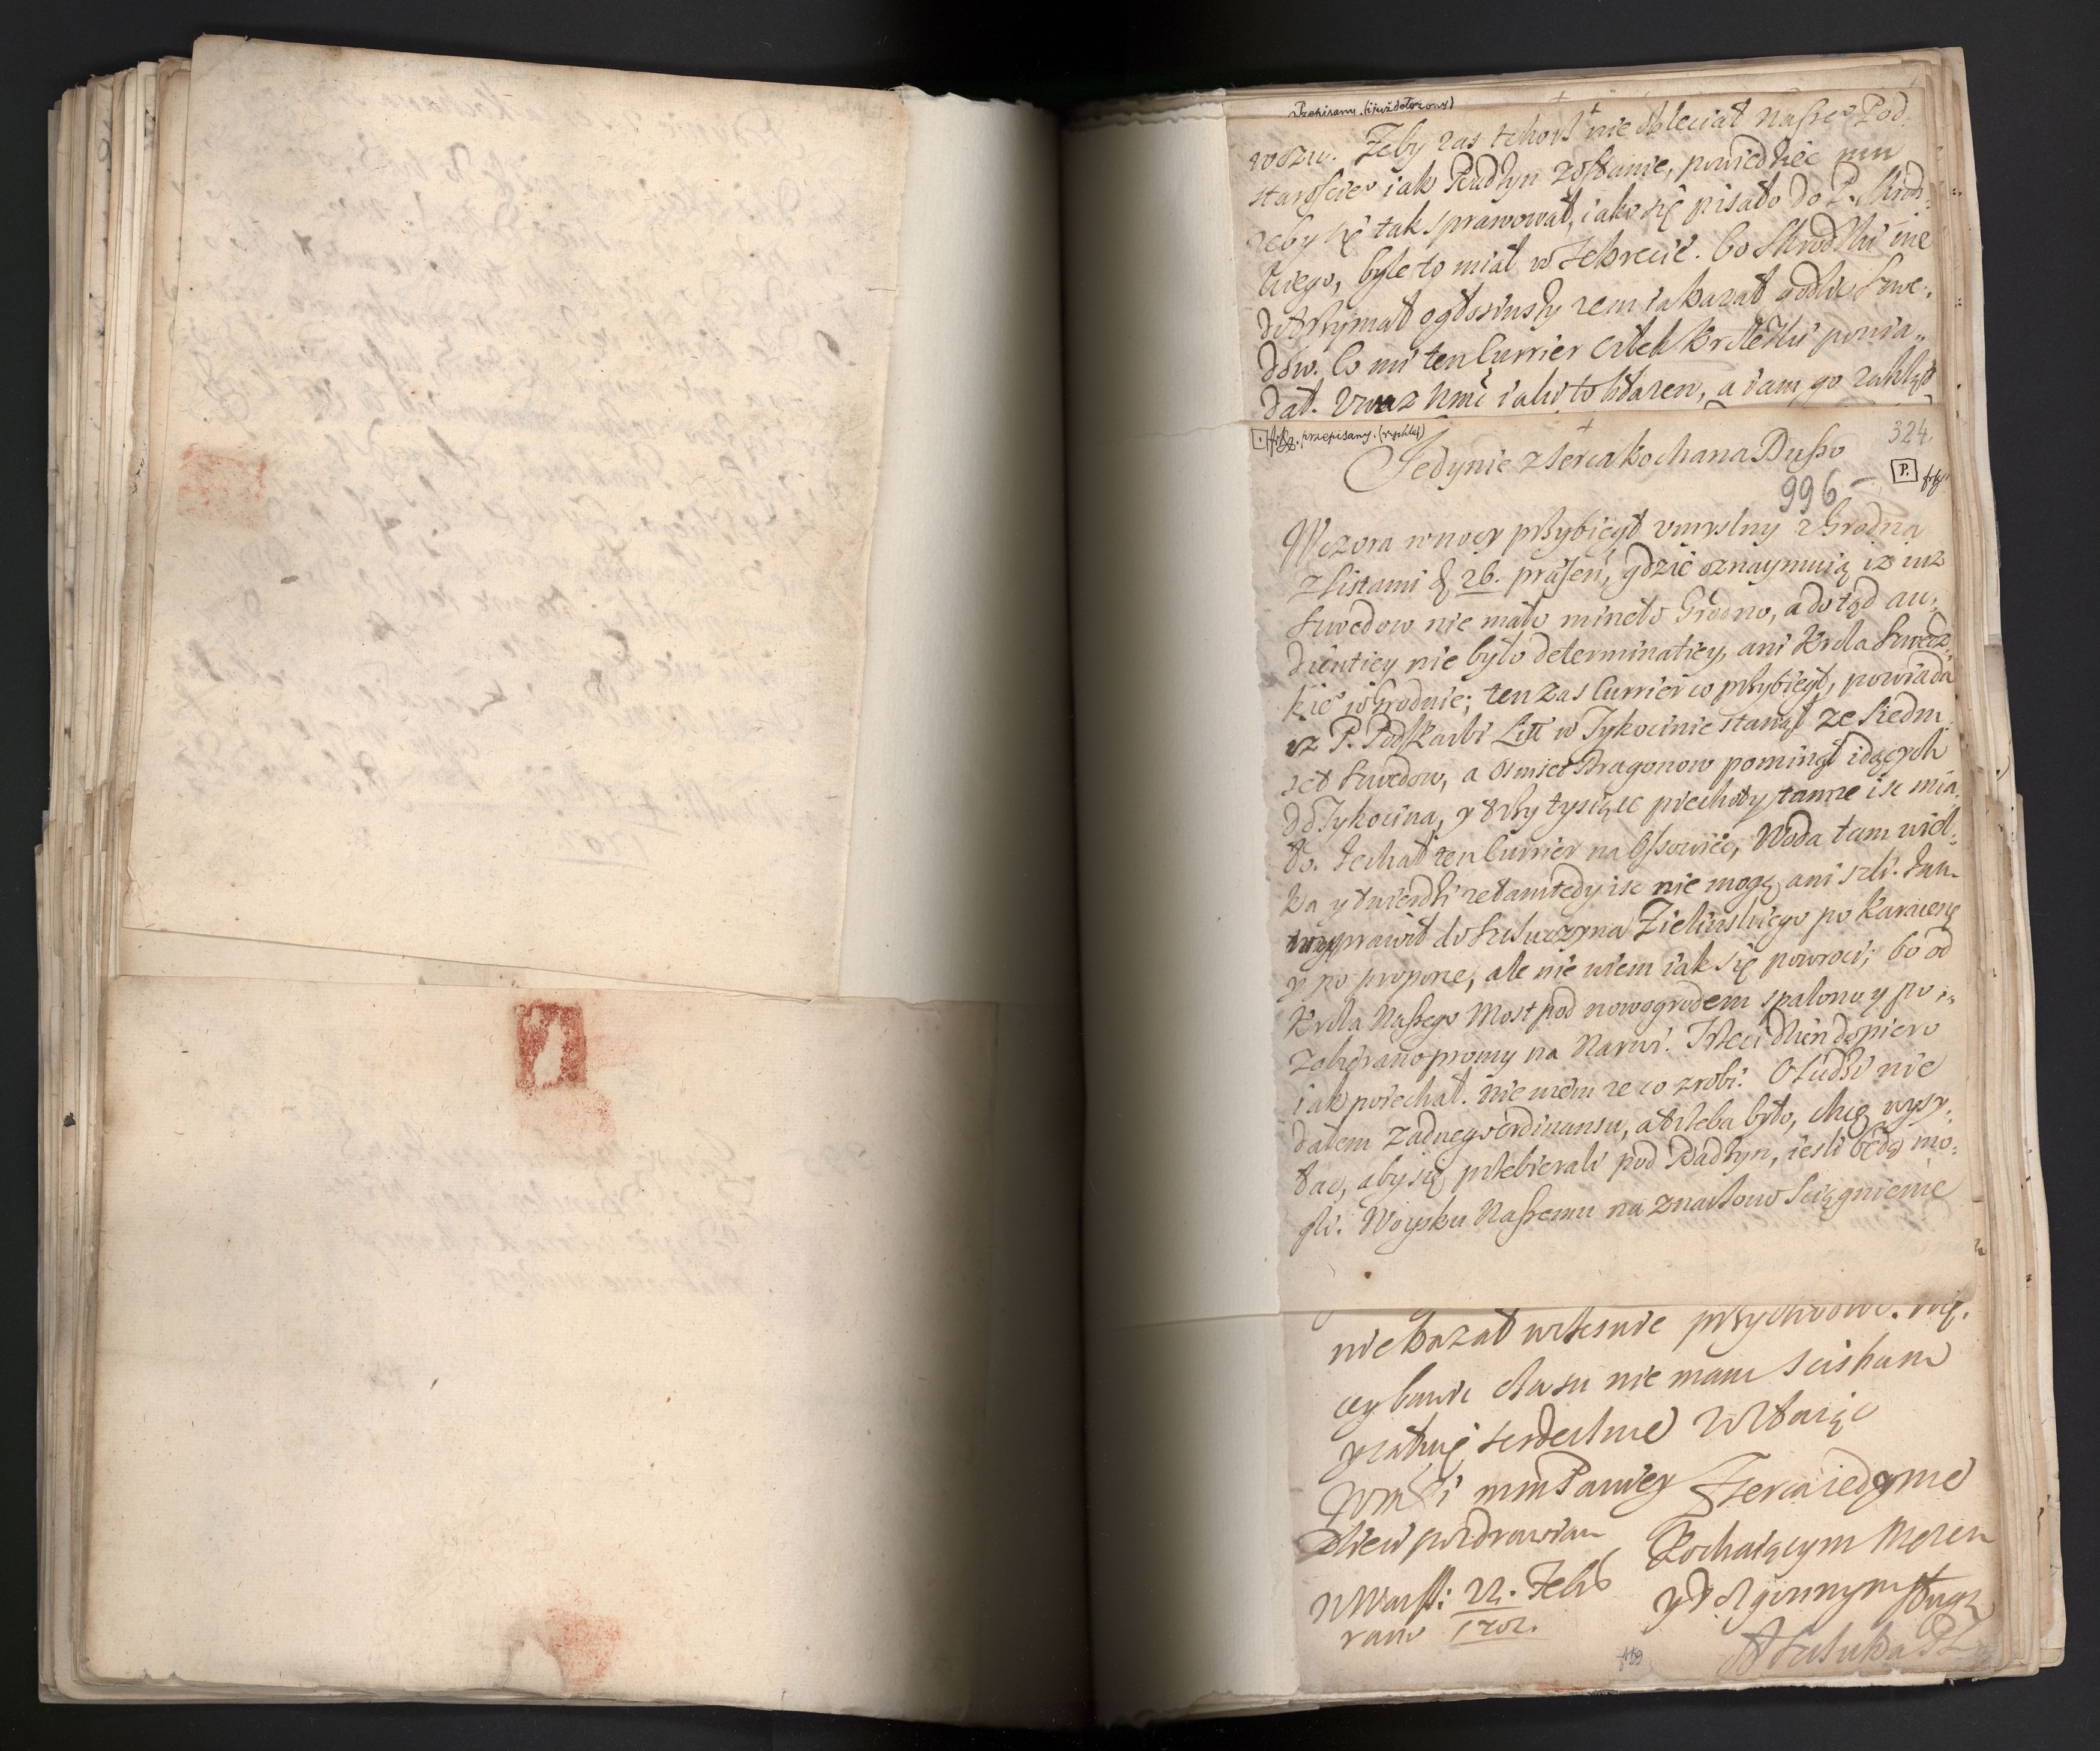 Przepisany. (i już dołożony)
wozu. Zeby zas tchorz nie obleciał naszeo Pod,
starościeo iak Radzyn zostanie, powiedziec mu
zeby się tak sprawował, iako się pisało do P. Skrod,
kiego, byle to miał w sekrecie. bo Skrodzki nie
dotrzymał ogłosiwszy zem ia kazał godzic Szwe,
dow. Co mi ten Currier człek krolewski powia,,
dał. Uwaz Wmć iaki to błazen, a iam go zaklął
przepisany. (rychlej)
324.
Jedynie z serca kochana Duszo
P.
996
Wczora w nocy przybiegł umyslny z Grodna
z listami d. 26. præsen, gdzie oznaymuią iz iuz
Szwedow nie mało mineło Grodno, a dotąd au,
dientiey nie było determinatiey, ani Krola Szwedz,
kieo w Grodnie; ten zas Currier co przybiegł, powiada
iz P. Podskarbi Litt w Tykocinie stanął ze siedm
set Szwedow, a osmset Dragonow pominął idących
do Tykocina, y trzy tysiące piechoty tamze isc mia,
ło. Jechał ten Currier na Ossowiec, Woda tam wiel,
ka y twierdzi ze tamtedy isc nie mogą ani szli. Jam
wyprawił do Szczuczyna Zielinskiego po Karacenę
y po propone, ale nie wiem iak się powroci; bo od
Krola Naszego Most pod nowogrodem spalono y po,,
zabierano promy na Narwi. Trzeci dzien dopiero
iak poiechał. nie wiem ze co zrobi. O ludzi nie
dałem zadnego ordinansu, a trzeba było, chcę wysy,
łac, aby się przebierali pod Radzyn, iesli będą mo,
gli. Woysku Naszemu na znaczono sciągnienie
nie kazał wczesnie przychodzic. Wię,
cey bawic czasu nie mam sciskam
y całuię serdecznie Zostaię
Wmści mm Paniey Serca iedynie
Dzieci pozdrawiam Kochaiącym Mężem
W Warsz: 22. Febr y uprzeymym sługą
rano 1702.
A Szczuka P L